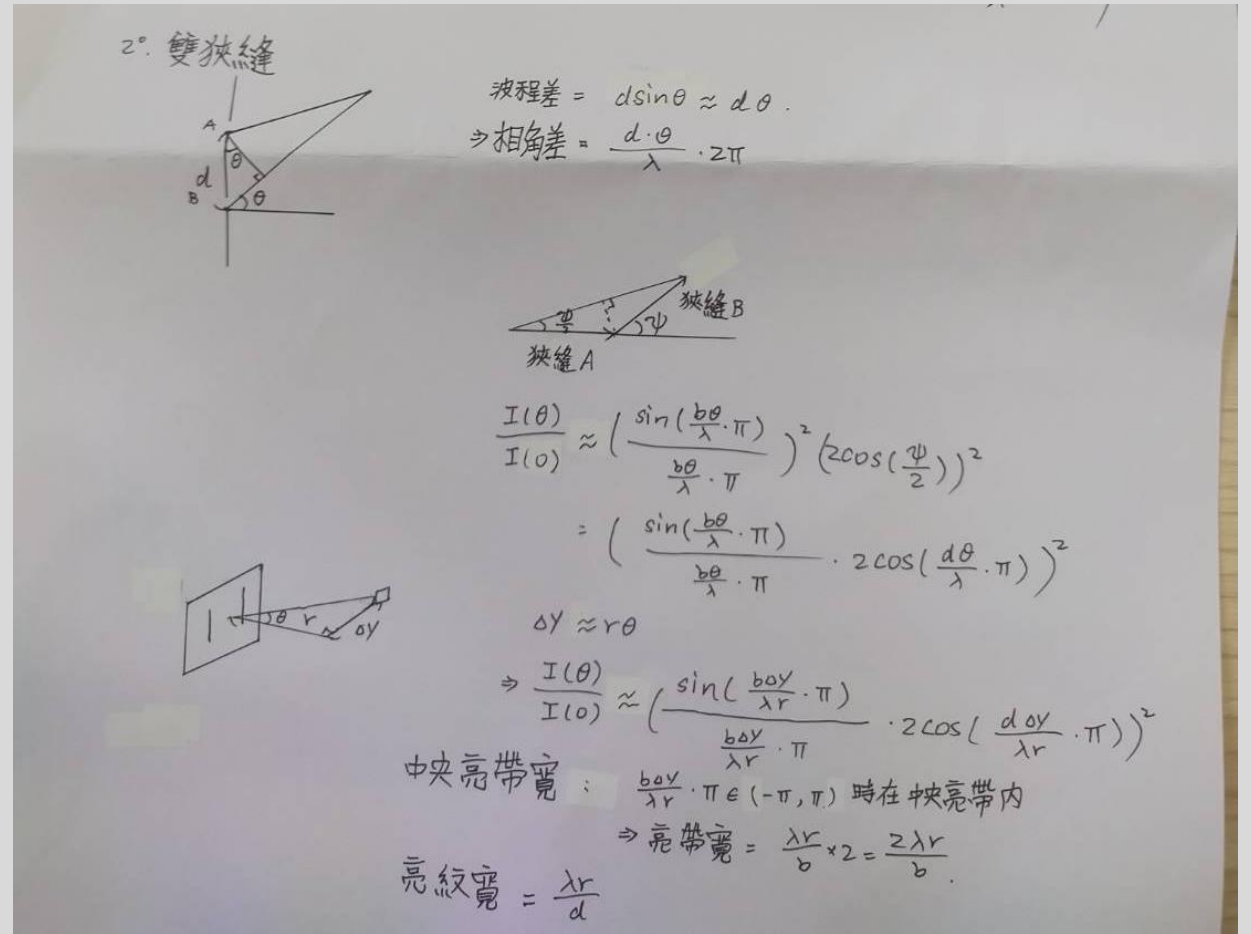 2°. 雙狹縫
A
θ
d
B
θ
波程差 = dsinθ ≈ dθ.
⇒相角差 = \frac{d·θ}{λ} · 2π
ψ/2
ψ
狹縫B
狹縫A
\frac{I(θ)}{I(0)} ≈ (\frac{sin(\frac{bθ}{λ}·π)}{\frac{bθ}{λ}·π})^2 (2cos(\frac{ψ}{2}))^2
= (\frac{sin(\frac{bθ}{λ}·π)}{\frac{bθ}{λ}·π} · 2cos(\frac{dθ}{λ}·π))^2
θ r ΔY
ΔY ≈ rθ
⇒ \frac{I(θ)}{I(0)} ≈ (\frac{sin(\frac{bΔY}{λr}·π)}{\frac{bΔY}{λr}·π} · 2cos(\frac{dΔY}{λr}·π))^2
中央亮帶寬 : \frac{bΔY}{λr}·π ∈ (-π, π) 時在中央亮帶內
⇒ 亮帶寬 = \frac{λr}{b}×2 = \frac{2λr}{b}.
亮紋寬 = \frac{λr}{d}